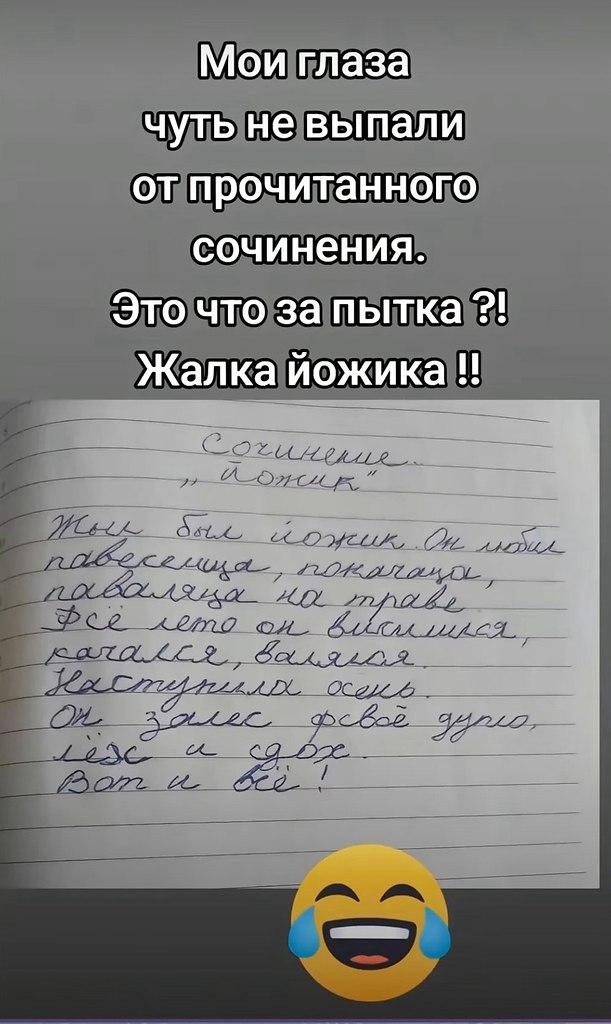 Мои глаза
чуть не выпали
от прочитанного
сочинения.
Это что за пытка ?!
Жалка йожика !!
Сочинение.
„Йожик"
Жыл был йожик. Он любил
павеселица, покачаца,
паваляца на траве
Фсё лето он висилился,
качался, валялся.
Наступила осень.
Он залес фсвоё дупло,
лёх и сдох.
Вот и всё!